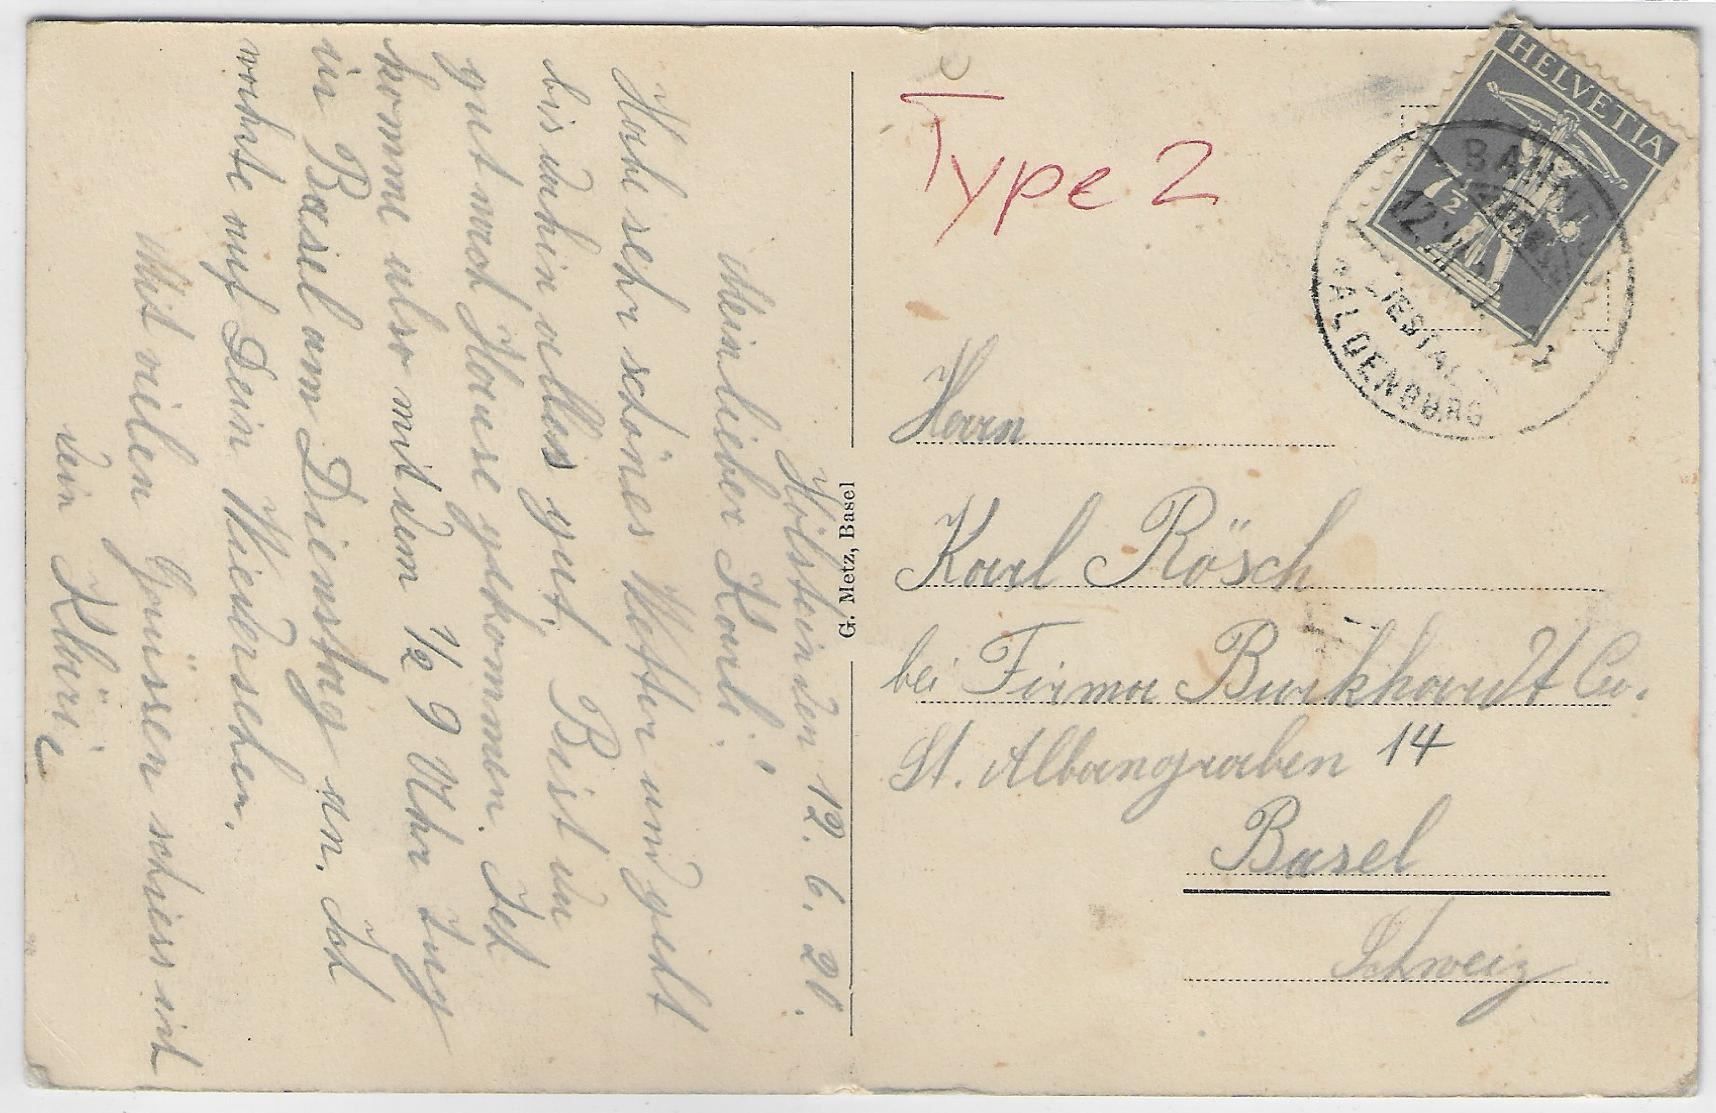 Hölsteinden 12. 6. 20.
Mein lieber Karli!
Habe sehr schönes Wetter und geht
bis dahin alles gut. Bist du
gut nach Hause gekommen. Ich
komme also mit dem ½ 9 Uhr Zug
in Basel am Dienstag an. Ich
warte auf Dein Wiedersehen.
Mit vielen Grüssen schliesst
dein Kläri
G. Metz, Basel
Type 2
HELVETIA
7½
BAHNP
12. VI.
LIESTAL
WALDENBURG
Herrn
Karl Rösch
bei Firma Burkhardt Co.
St. Albangraben 14
Basel
Schweiz